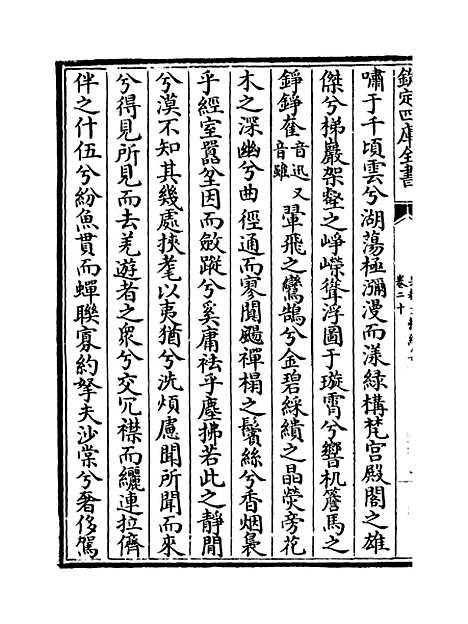 欽定四庫全書
卷二十
嘯于千頃雲兮湖蕩極瀰漫而漾緑構梵宫殿閣之雄
傑兮梯巖架壑之崢嶸聳浮圖于璇霄兮響机簷馬之
錚錚䧿音迅又音雖翬飛之鸞鵠兮金碧綵繢之晶熒旁花
木之深幽兮曲徑通而寥闃颺禪榻之鬢絲兮香烟裊
乎經室囂坌因而斂蹤兮奚庸袪乎塵拂若此之靜閒
兮漠不知其幾處挾耄以夷猶兮洗煩慮聞所聞而來
兮得見所見而去羌遊者之衆兮交冗襟而纚連拉儕
伴之什伍兮紛魚貫而蟬聯寡約拏夫沙棠兮奢侈駕